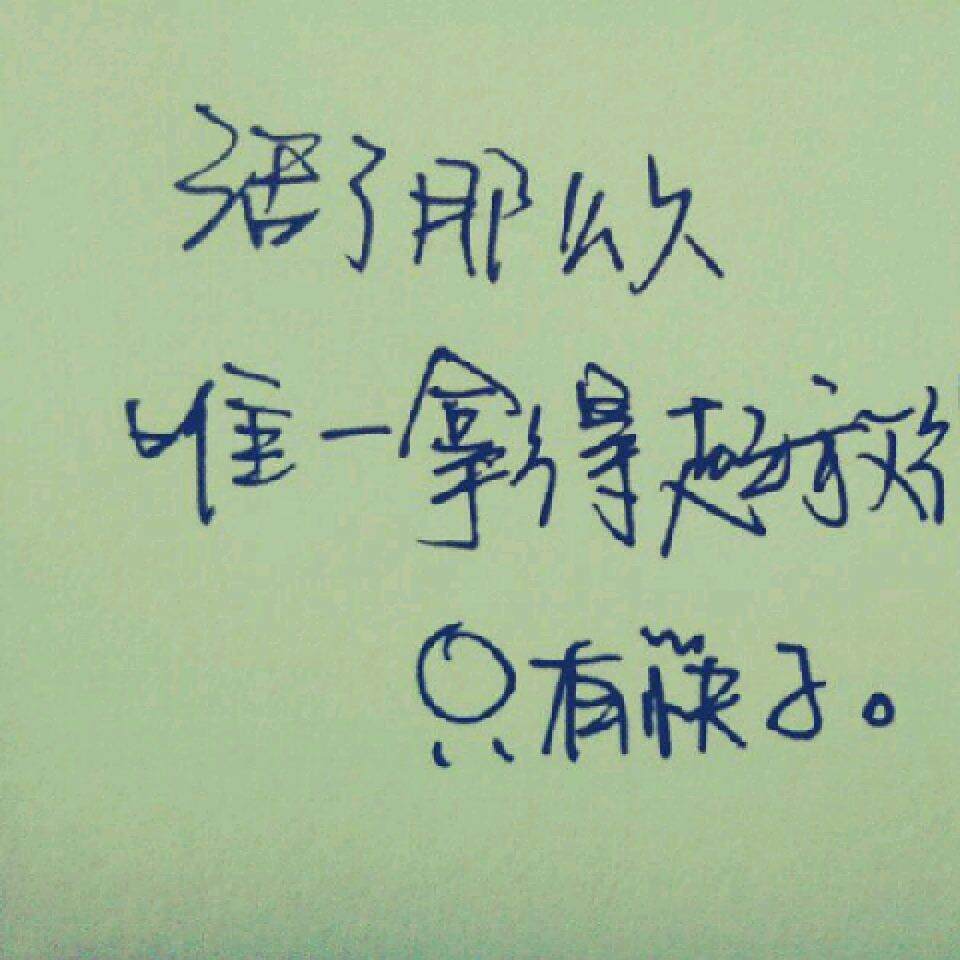 活了那么久
唯一拿得起放
只有筷子。